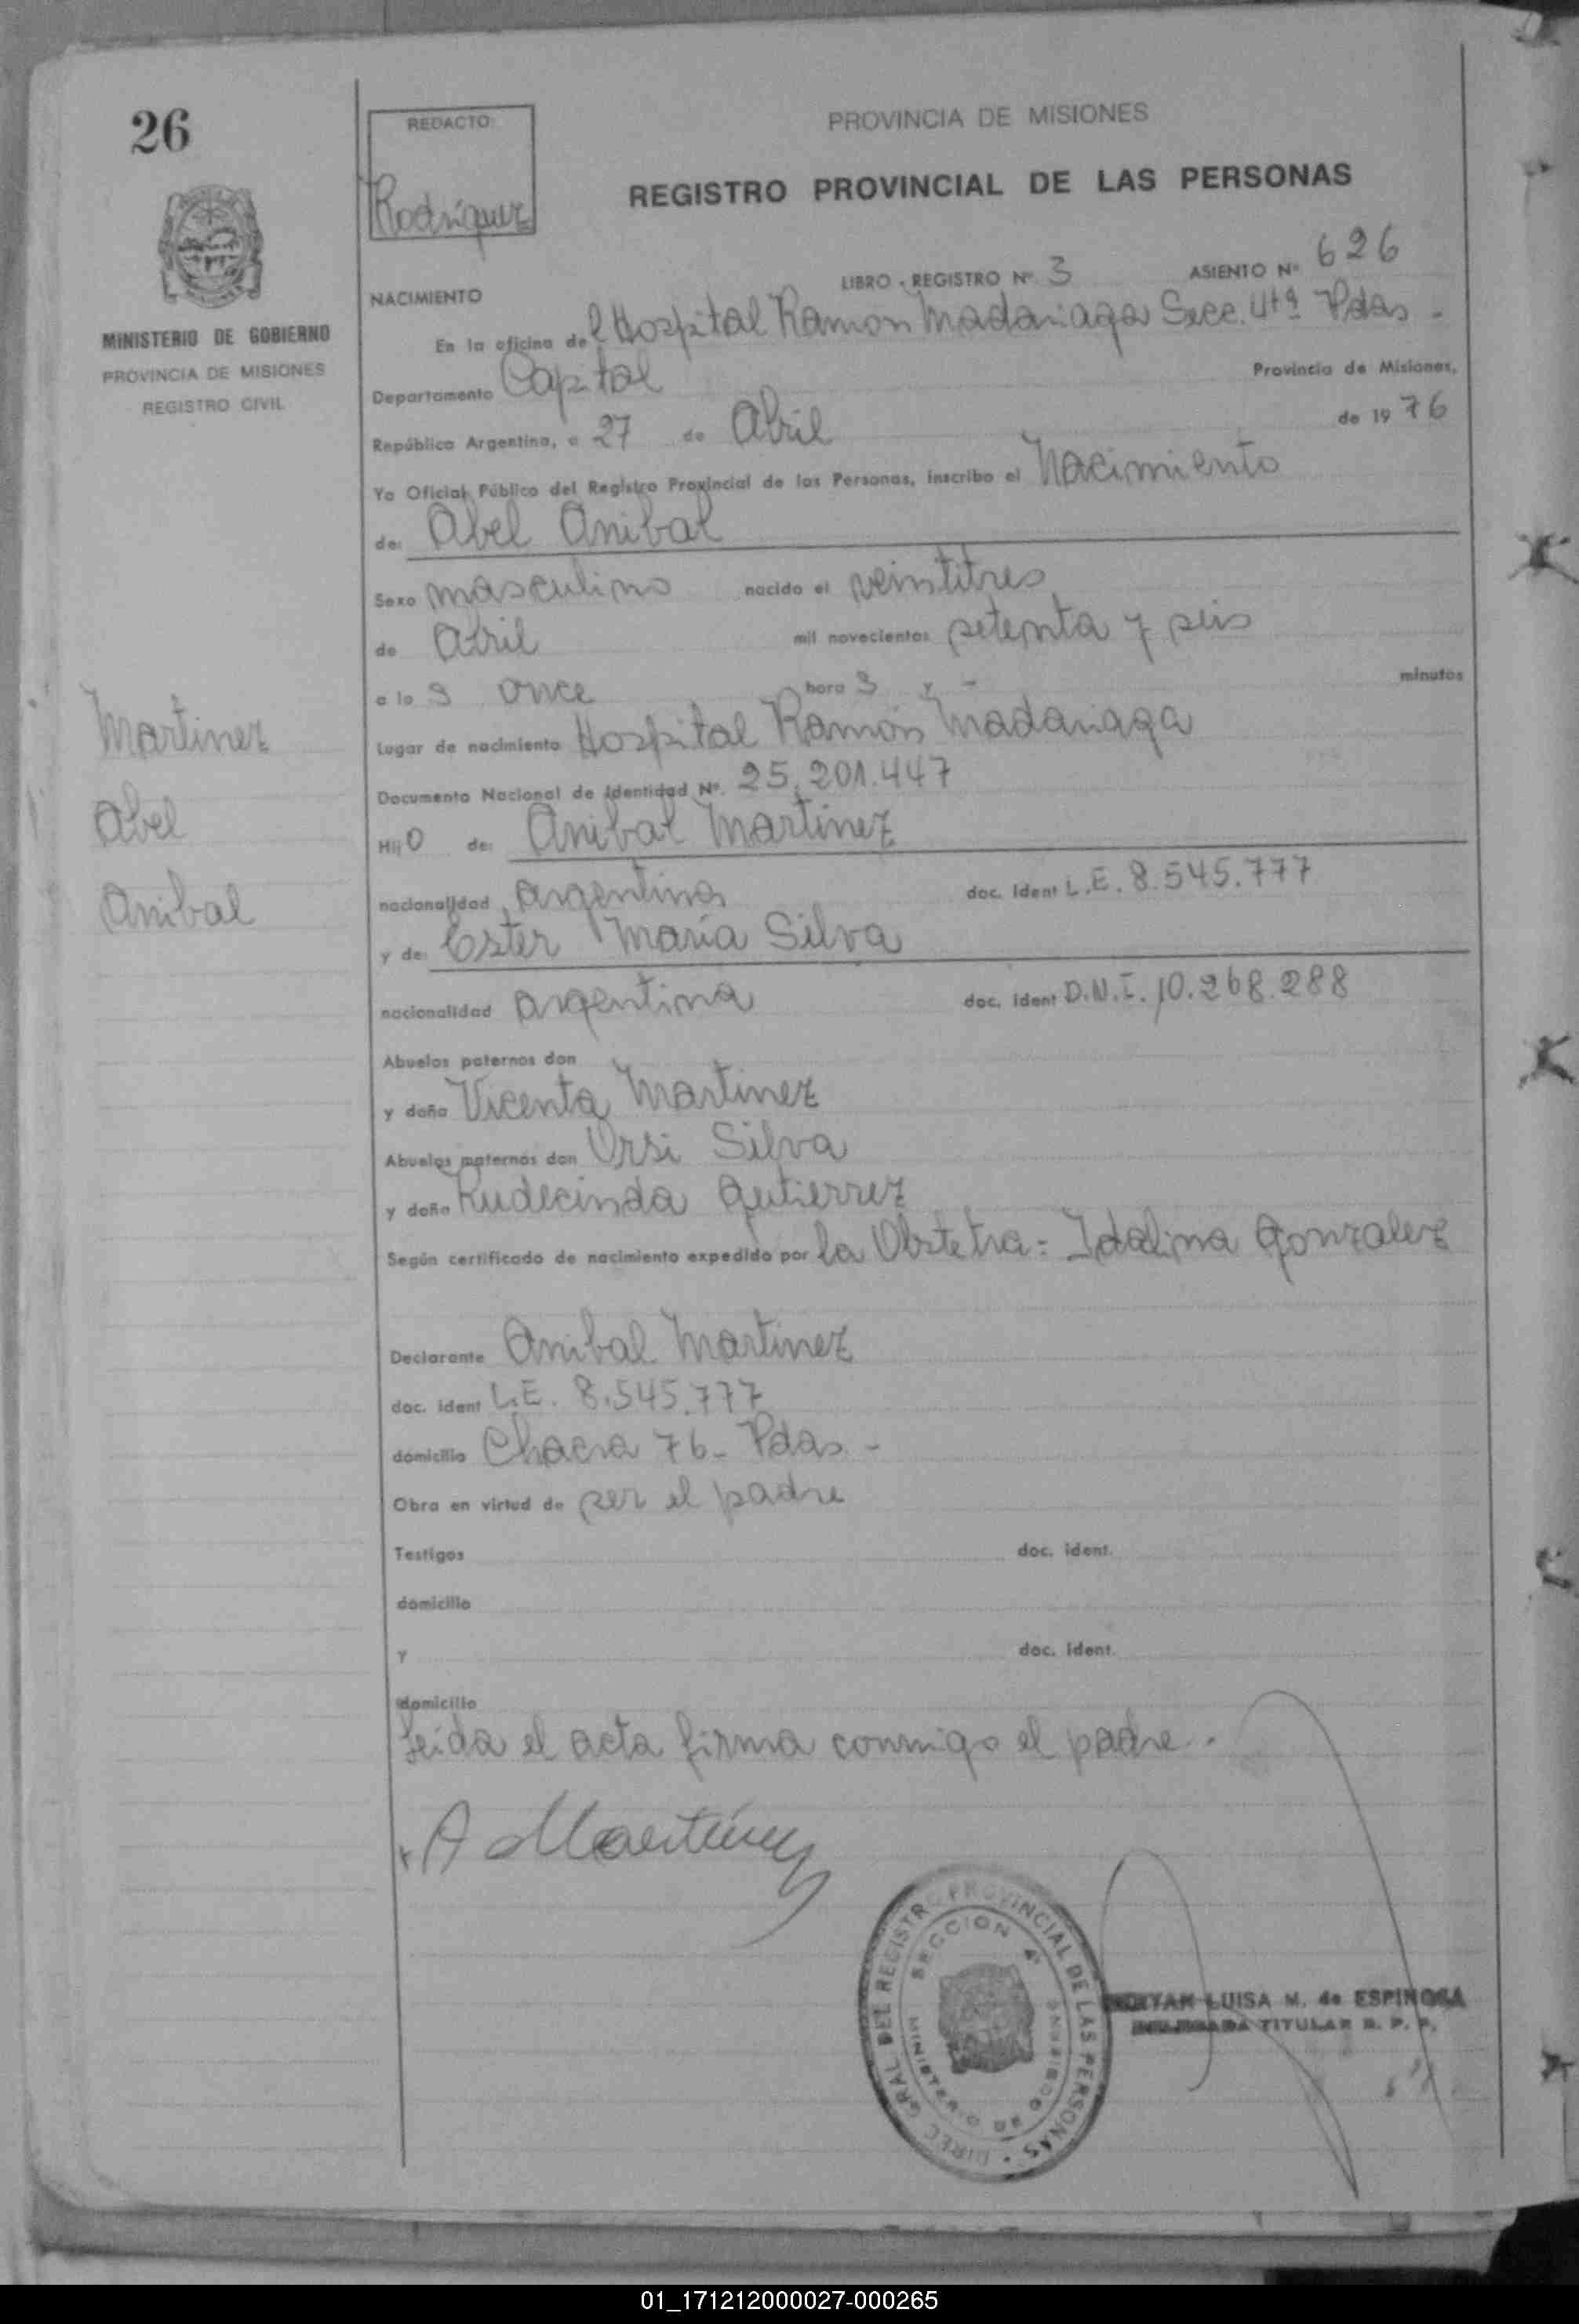 26
REDACTO:
Rodriguez
PROVINCIA DE MISIONES
REGISTRO PROVINCIAL DE LAS PERSONAS
MINISTERIO DE GOBIERNO
PROVINCIA DE MISIONES
REGISTRO CIVIL
NACIMIENTO
LIBRO - REGISTRO Nº 3 ASIENTO Nº 626
En la oficina del Hospital Ramón Madariaga Secc. 4tª Pdas -
Departamento Capital Provincia de Misiones,
República Argentina, a 27 de Abril de 1976
Yo Oficial Público del Registro Provincial de las Personas, inscribo el Nacimiento
de: Abel Anibal
Sexo masculino nacido el veintitres
de Abril mil novecientos setenta y seis
a las once horas y - minutos
Lugar de nacimiento Hospital Ramón Madariaga
Documento Nacional de Identidad Nº. 25.201.447
Hijo de: Anibal Martinez
nacionalidad argentina doc. ident L.E. 8.545.777
y de: Ester María Silva
nacionalidad argentina doc. ident D.N.I. 10.268.288
Abuelos paternos don
y doña Vicenta Martinez
Abuelos maternos don Ursi Silva
y doña Rudecinda Gutierrez
Según certificado de nacimiento expedido por la Obstetra: Idalina Gonzalez
Declarante Anibal Martinez
doc. ident L.E. 8.545.777
domicilio Chacra 76- Pdas -
Obra en virtud de ser el padre
Testigos doc. ident.
domicilio
y doc. ident.
domicilio
Leida el acta firma conmigo el padre.
Martinez
Abel
Anibal
A Martinez
DIREC. GRAL. DEL REGISTRO PROVINCIAL DE LAS PERSONAS
SECCION 4ª
MINISTERIO DE GOBIERNO
LUISA M. de ESPINOSA
DELEGADA TITULAR R. P. P.
01_171212000027-000265